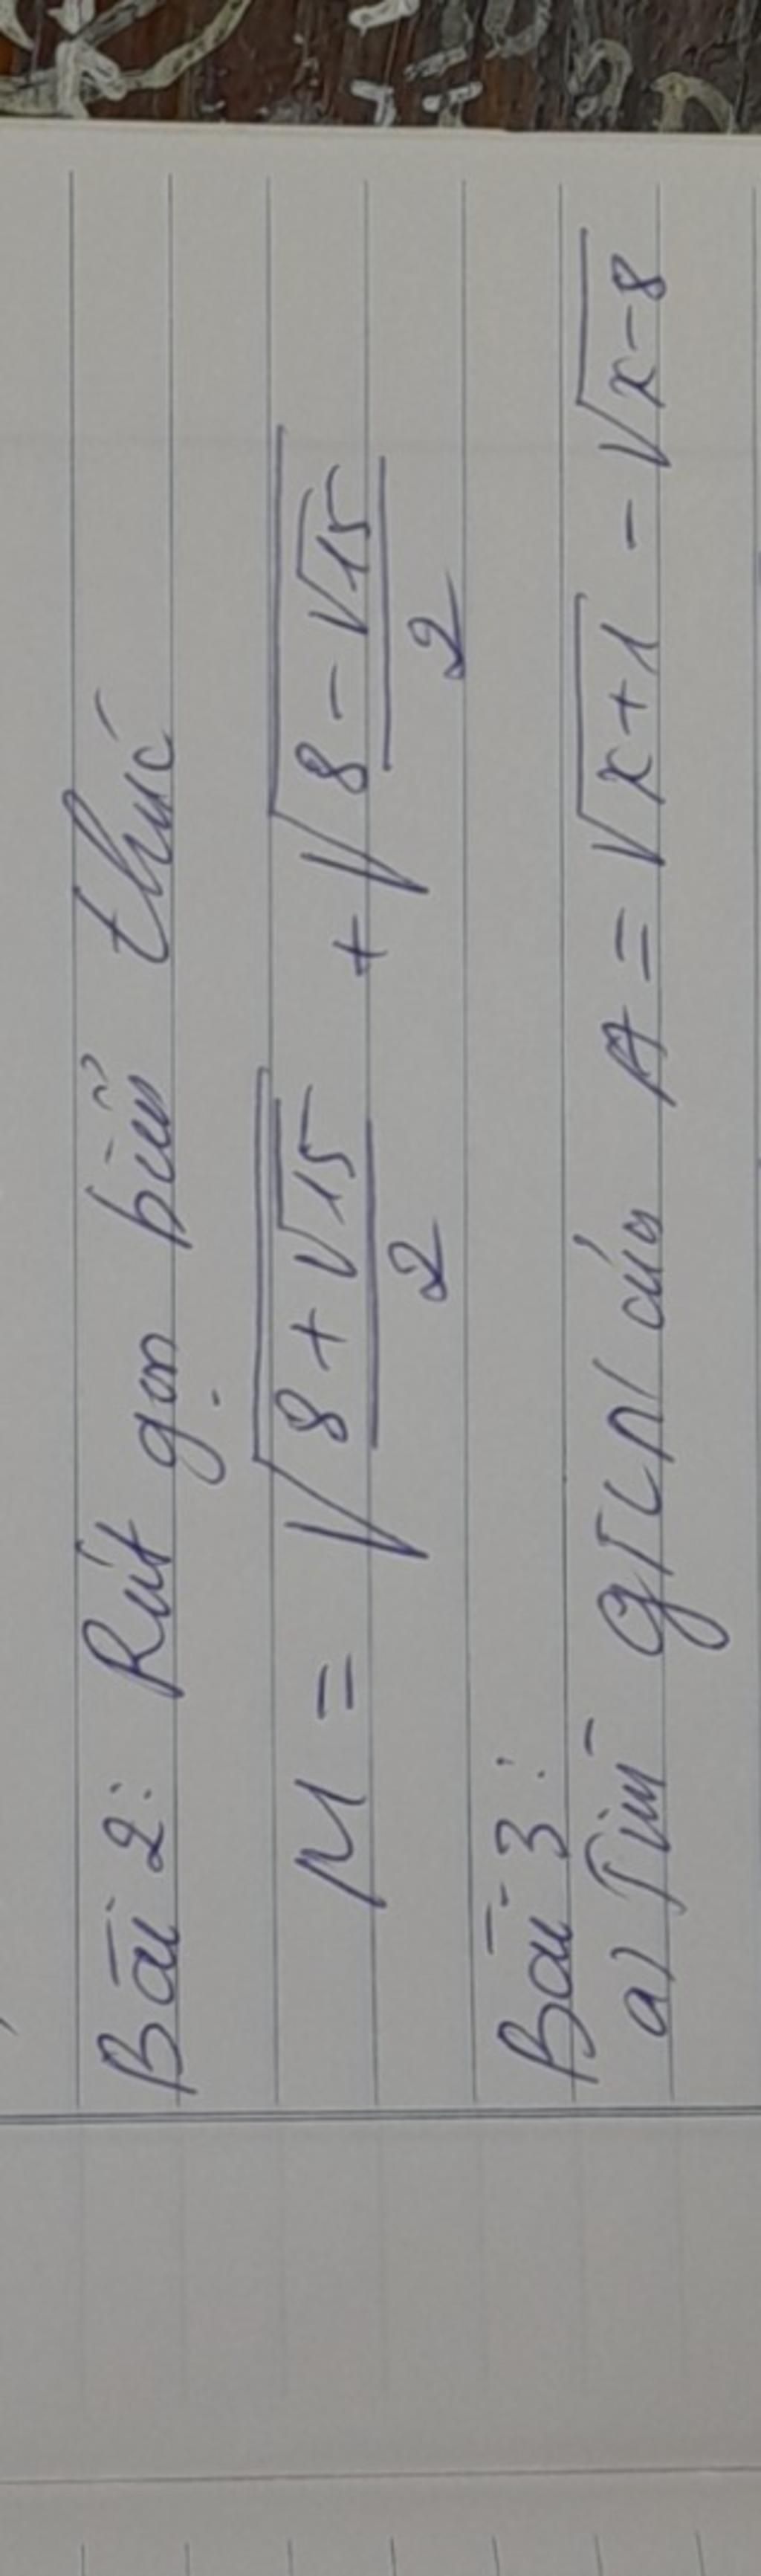 Bài 2: Rút gọn biểu thức
M = √((8 + √15)/2) + √((8 - √15)/2)
Bài 3:
a) Tìm GTLN của A = √(x+1) - √(x-8)